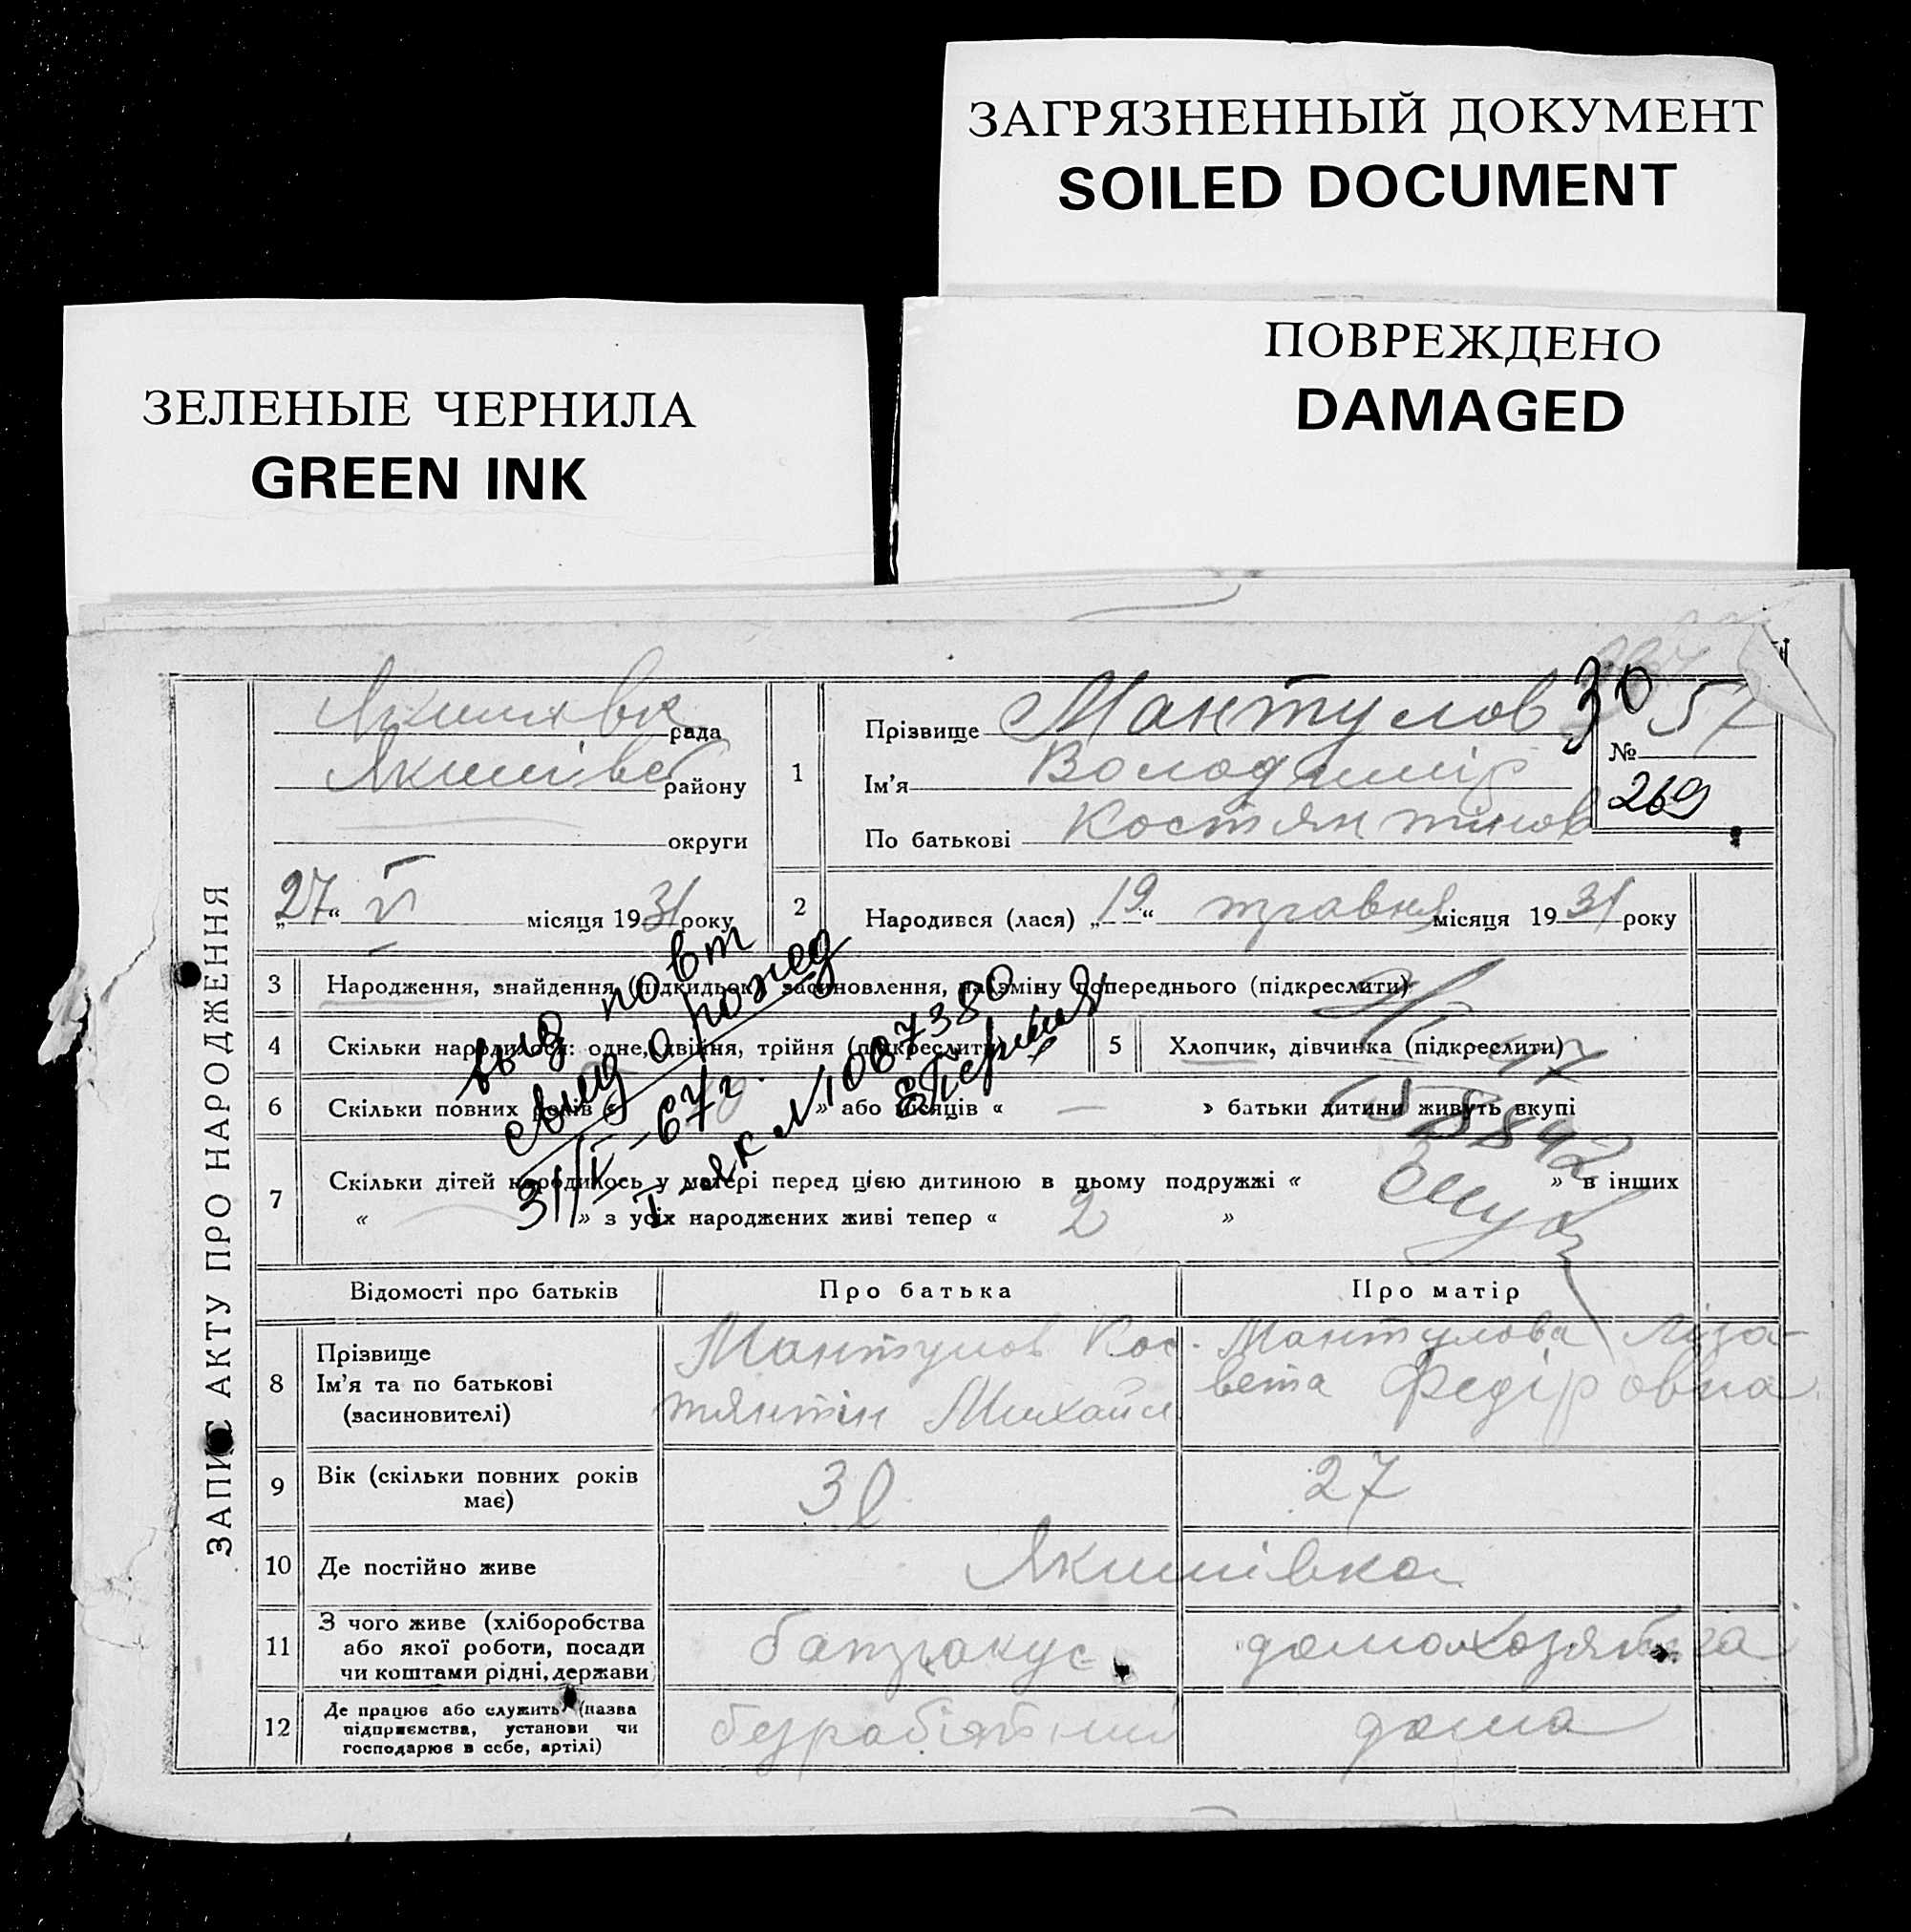 ЗАГРЯЗНЕННЫЙ ДОКУМЕНТ
SOILED DOCUMENT
ПОВРЕЖДЕНО
DAMAGED
ЗЕЛЕНЫЕ ЧЕРНИЛА
GREEN INK
ЗАПИС АКТУ ПРО НАРОДЖЕННЯ
рада
району
округи
„27“ V місяця 1931 року
1
Прізвище Мантулов
Ім'я Володимир
По батькові Костянтинов
30 57
№
269
2
Народився (лася) „19“ травня місяця 1931 року
3 Народження, знайдення (підкидьок), засиновлення, на зміну попереднього (підкреслити)
4 Скільки народилося: одне, двійня, трійня (підкреслити)
5 Хлопчик, дівчинка (підкреслити)
6 Скільки повних років « » або місяців « — » батьки дитини живуть вкупі
7 Скільки дітей народилось у матері перед цією дитиною в цьому подружжі « » в інших
« » з усіх народжених живі тепер « 2 »
выд повт
свид о рожд
31/V-67г.
I-ЯК № 1007380
Відомості про батьків
Про батька
Про матір
8 Прізвище
Ім'я та по батькові
(засиновителі)
Мантулов Кос-
тянтін Михайл
Мантулова Ліза-
вета Федіровна
9 Вік (скільки повних років
має)
30
27
10 Де постійно живе
Якимівка
11 З чого живе (хліборобства
або якої роботи, посади
чи коштами рідні, держави)
батракує
домохозяйка
12 Де працює або служить (назва
підприємства, установи чи
господарює в себе, артілі)
безработний
дома